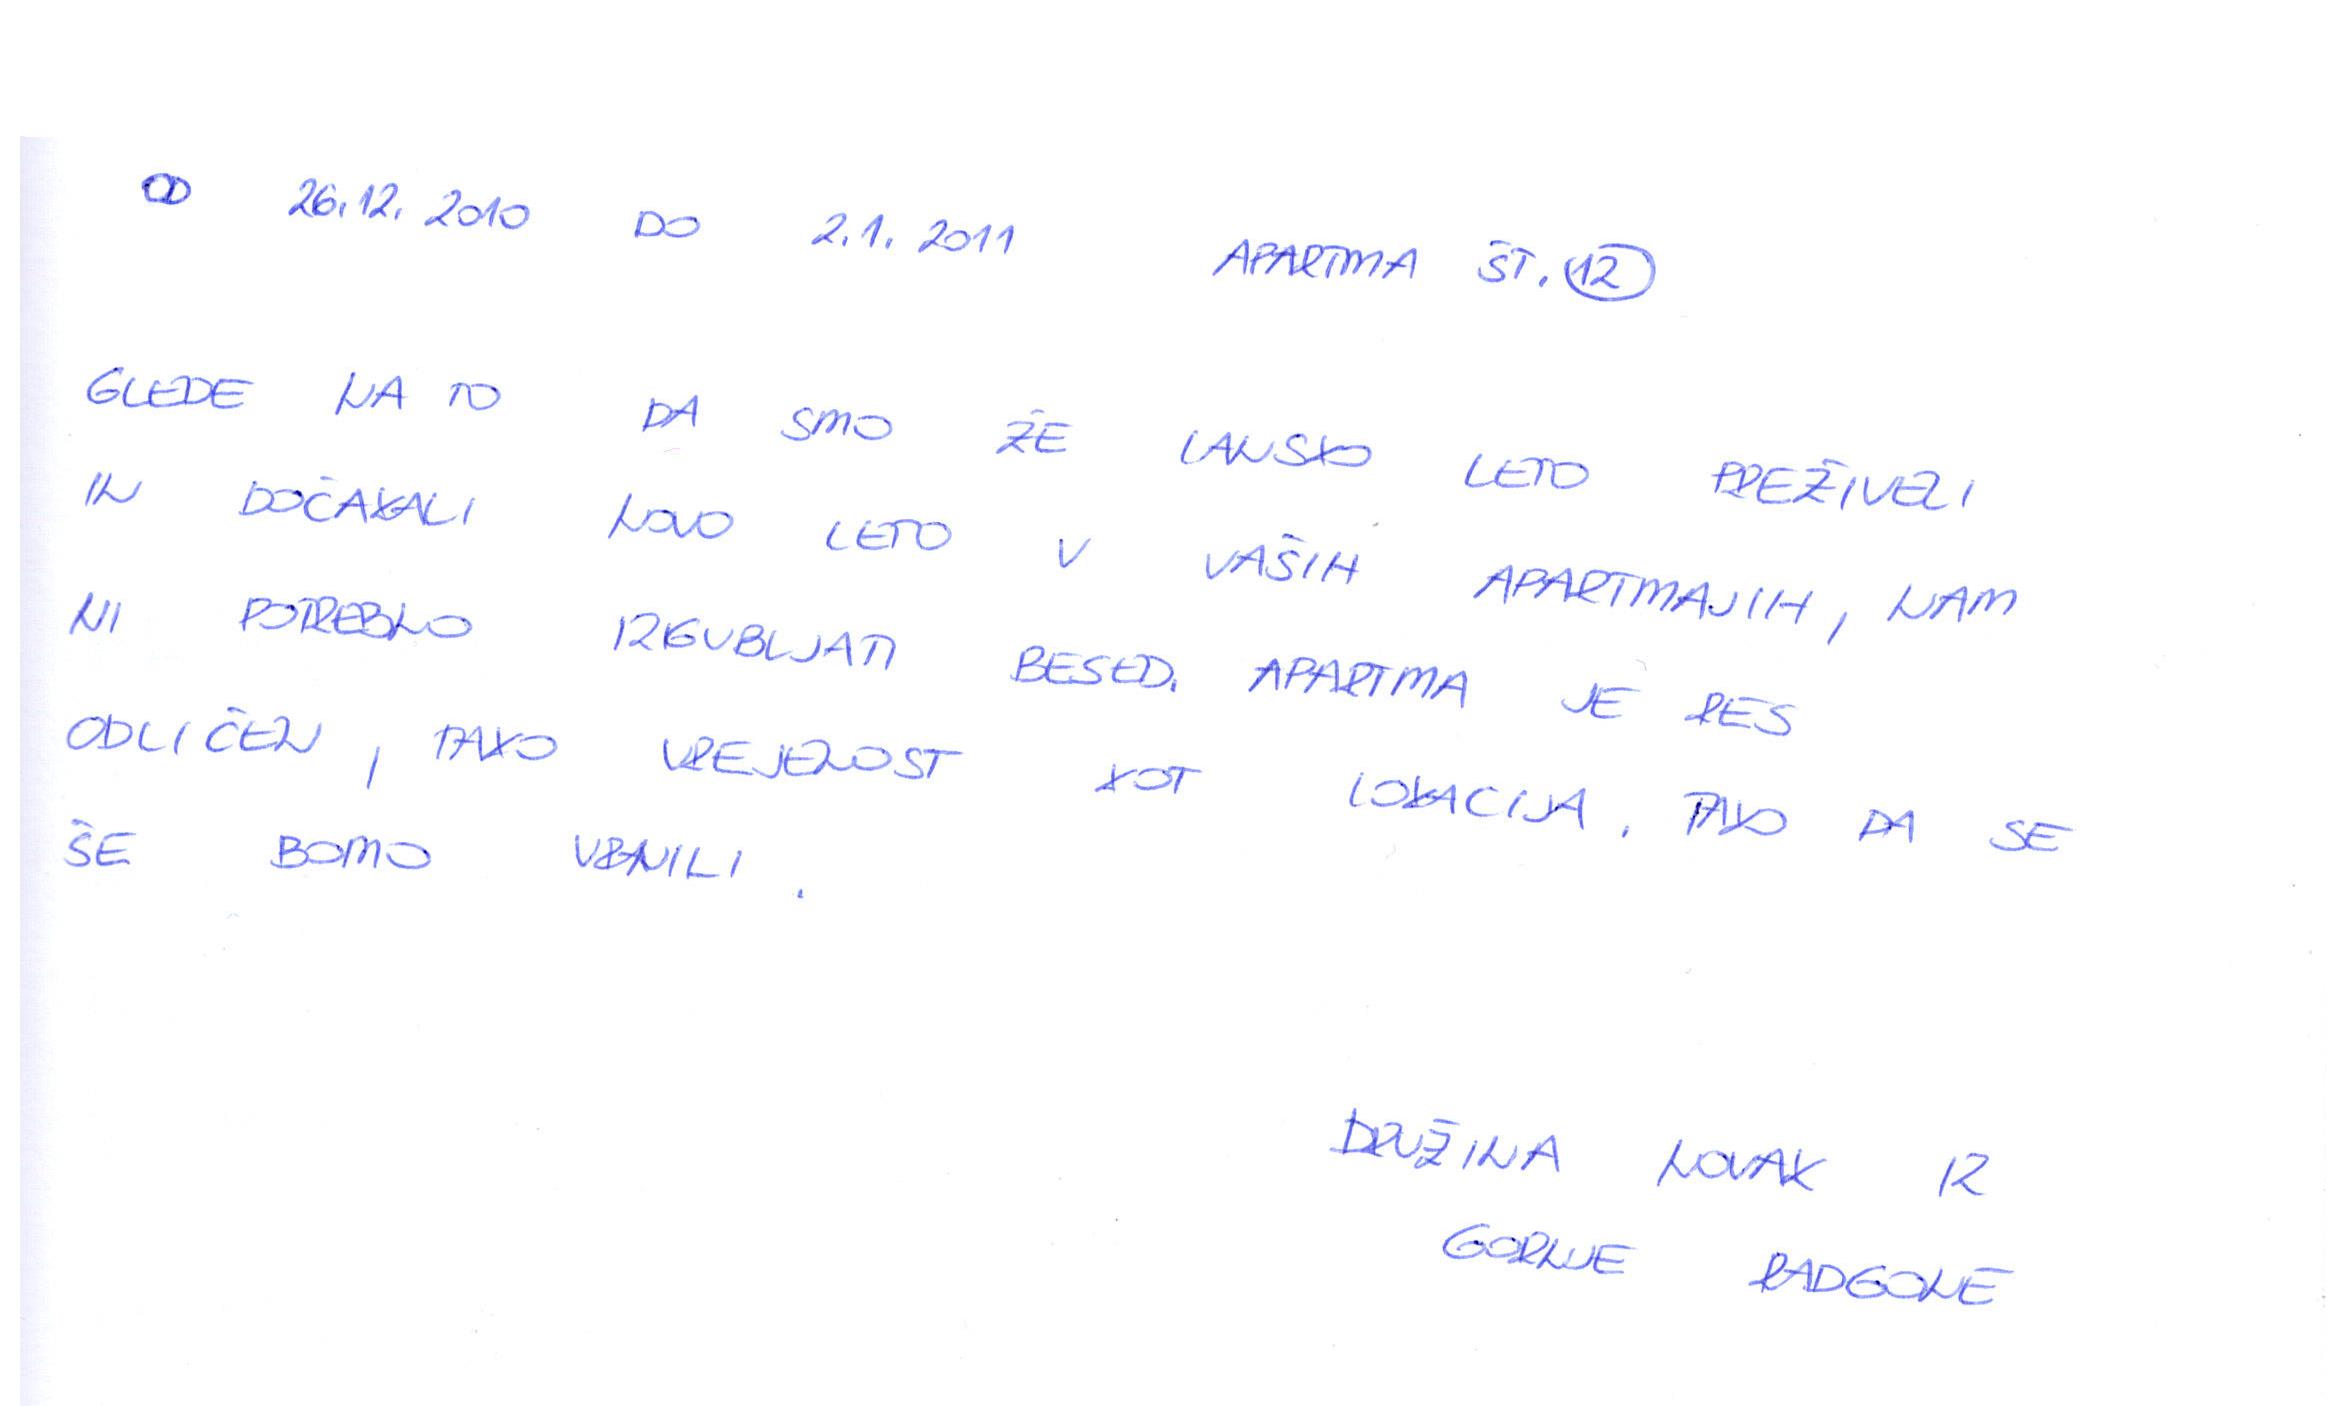 OD 26.12.2010 DO 2.1.2011 APARTMA ŠT. 12
GLEDE NA TO DA SMO ŽE LANSKO LETO PREŽIVELI
IN DOČAKALI NOVO LETO V VAŠIH APARTMAJIH, NAM
NI POTREBNO IZGUBLJATI BESED. APARTMA JE RES
ODLIČEN, TAKO UREJENOST KOT LOKACIJA. TAKO DA SE
ŠE BOMO VRNILI.
DRUŽINA NOVAK IZ
GORNJE RADGONE